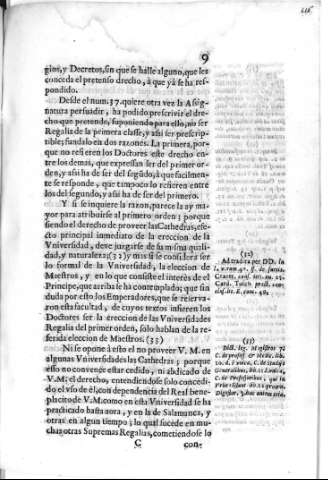 9
gios, y Decretos, sin que se halle alguno, que les
conceda el pretenso drecho, à que yà se ha res-
pondido.
Desde el num. 37. quiere otra vez la Asig-
natura persuadir, ha podido prescrivir el dre-
cho que pretende, suponiendo para ello, no ser
Regalia de la primera classe, y assi ser prescrip-
tible; fundalo en dos razones. La primera, por-
que no refieren los Doctores este drecho en-
tre los demas, que expressan ser del primer or-
den, y assi ha de ser del segūdo, à que facilmen-
te se responde, que tampoco lo refieren entre
los del segundo, y assi ha de ser del primero.
Y si se inquiere la razon, parece la ay ma-
yor para atribuirse al primero orden; porque
siendo el derecho de proveer las Cathedras, efe-
cto principal inmediato de la ereccion de la
Vniversidad, deve juzgarse de su misma quali-
dad, y naturaleza; (32) y mas si se considera ser
lo formal de la Vniversidad, la eleccion de
Maestros, y en lo que consiste el interès de el
Principe, que arriba se ha contemplado; que sin
duda por esso los Emperadores, que se reserva-
ron esta facultad, de cuyos textos infieren los
Doctores ser la ereccion de las Vniversidades
Regalia del primer orden, solo hablan de la re-
ferida eleccion de Maestros. (33)
Ni se opone à esto el no proveer V. M. en
algunas Vniversidades las Cathedras; porque
esso no convence estar cedido, ni abdicado de
V. M. el derecho, entendiendose solo concedi-
do el vso de èl, con dependencia del Real bene-
placito de V. M. como en esta Vniversidad se ha
practicado hasta aora, y en la de Salamanca, y
otras en algun tiempo; lo qual sucede en mu-
chas otras Supremas Regalias, cometiendose lo
C
con-
(32)
(33)